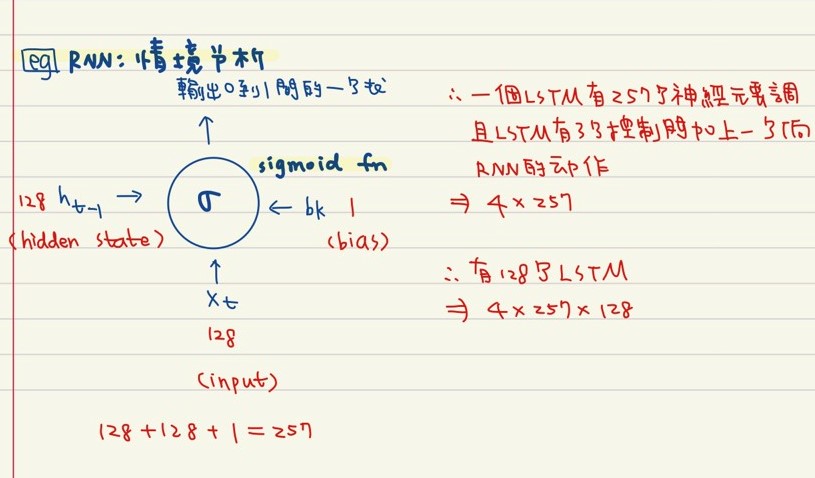 eg RNN: 情境分析
輸出0到1間的一个太
σ
sigmoid fn
128 h t-1 →
(hidden state)
← bk 1
(bias)
x t
128
(input)
128 + 128 + 1 = 257
∴ 一個LSTM有257个神經元要調
且LSTM有3个控制閥加上一个同
RNN的動作
⇒ 4 × 257
∴ 有128个LSTM
⇒ 4 × 257 × 128